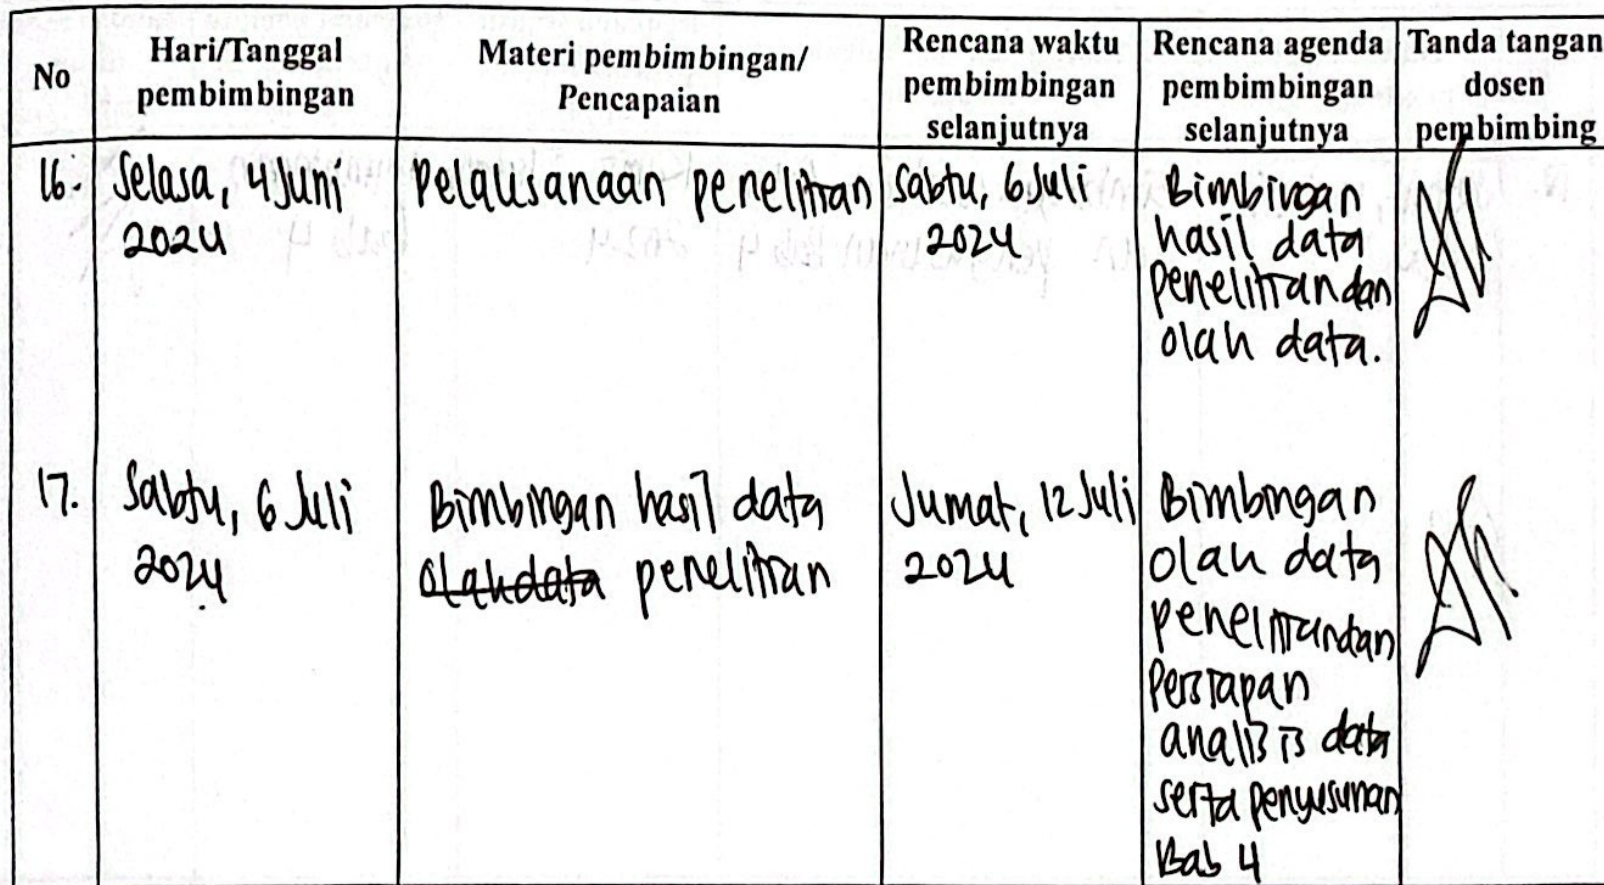 No
Hari/Tanggal
pembimbingan
Materi pembimbingan/
Pencapaian
Rencana waktu
pembimbingan
selanjutnya
Rencana agenda
pembimbingan
selanjutnya
Tanda tangan
dosen
pembimbing
16.
Selasa, 4 Juni
2024
Pelaksanaan penelitian
Sabtu, 6 Juli
2024
Bimbingan
hasil data
penelitian dan
olah data.
17.
Sabtu, 6 Juli
2024
Bimbingan hasil data
olah data penelitian
Jumat, 12 Juli
2024
Bimbingan
olah data
penelitian dan
Persiapan
analisis data
serta penyusunan
Bab 4